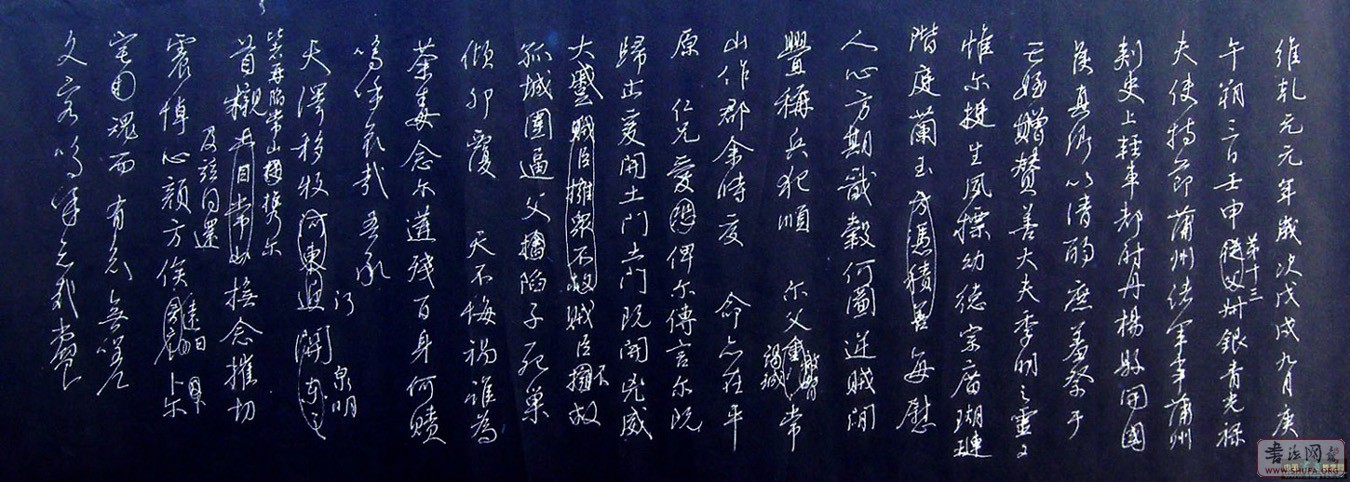 維乾元元年歲次戊戌九月庚
午朔三日壬申第十三從父叔銀青光祿
夫使持節蒲州諸軍事蒲州
刺史上輕車都尉丹楊縣開國
侯真卿以清酌庶羞祭于
亡姪贈贊善大夫季明之靈曰
惟爾挺生夙標幼德宗廟瑚璉
階庭蘭玉方憑積善每慰
人心方期戩穀何圖逆賊間
釁稱兵犯順 爾父竭誠常
山作郡余時受 命亦在平
原 仁兄愛 俾爾傳言爾既
歸止爰開土門土門既開兇威
大蹙賊臣擁眾不救賊臣不擁救
孤城圍逼父擒陷子死巢
傾卵覆 天不悔禍誰為
荼毒念爾遘殘百身何贖
嗚呼哀哉吾承
天澤移牧河東近泉明
首櫬及同還 撫念摧切
震悼心顏方俟 卜爾
宅 魂而有知無嗟久
客嗚呼哀哉尚饗
書法網
WWW.SHUFA.ORG